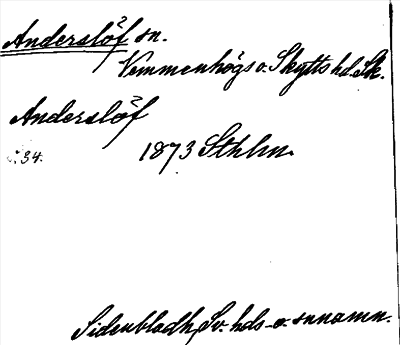 Anderslöf sn.
Vemmenhögs o. Skytts hd. Sk.
Anderslöf
s. 34. 1873 Sthlm.
Sidenbladh, Sv. hds- o. snnamn.